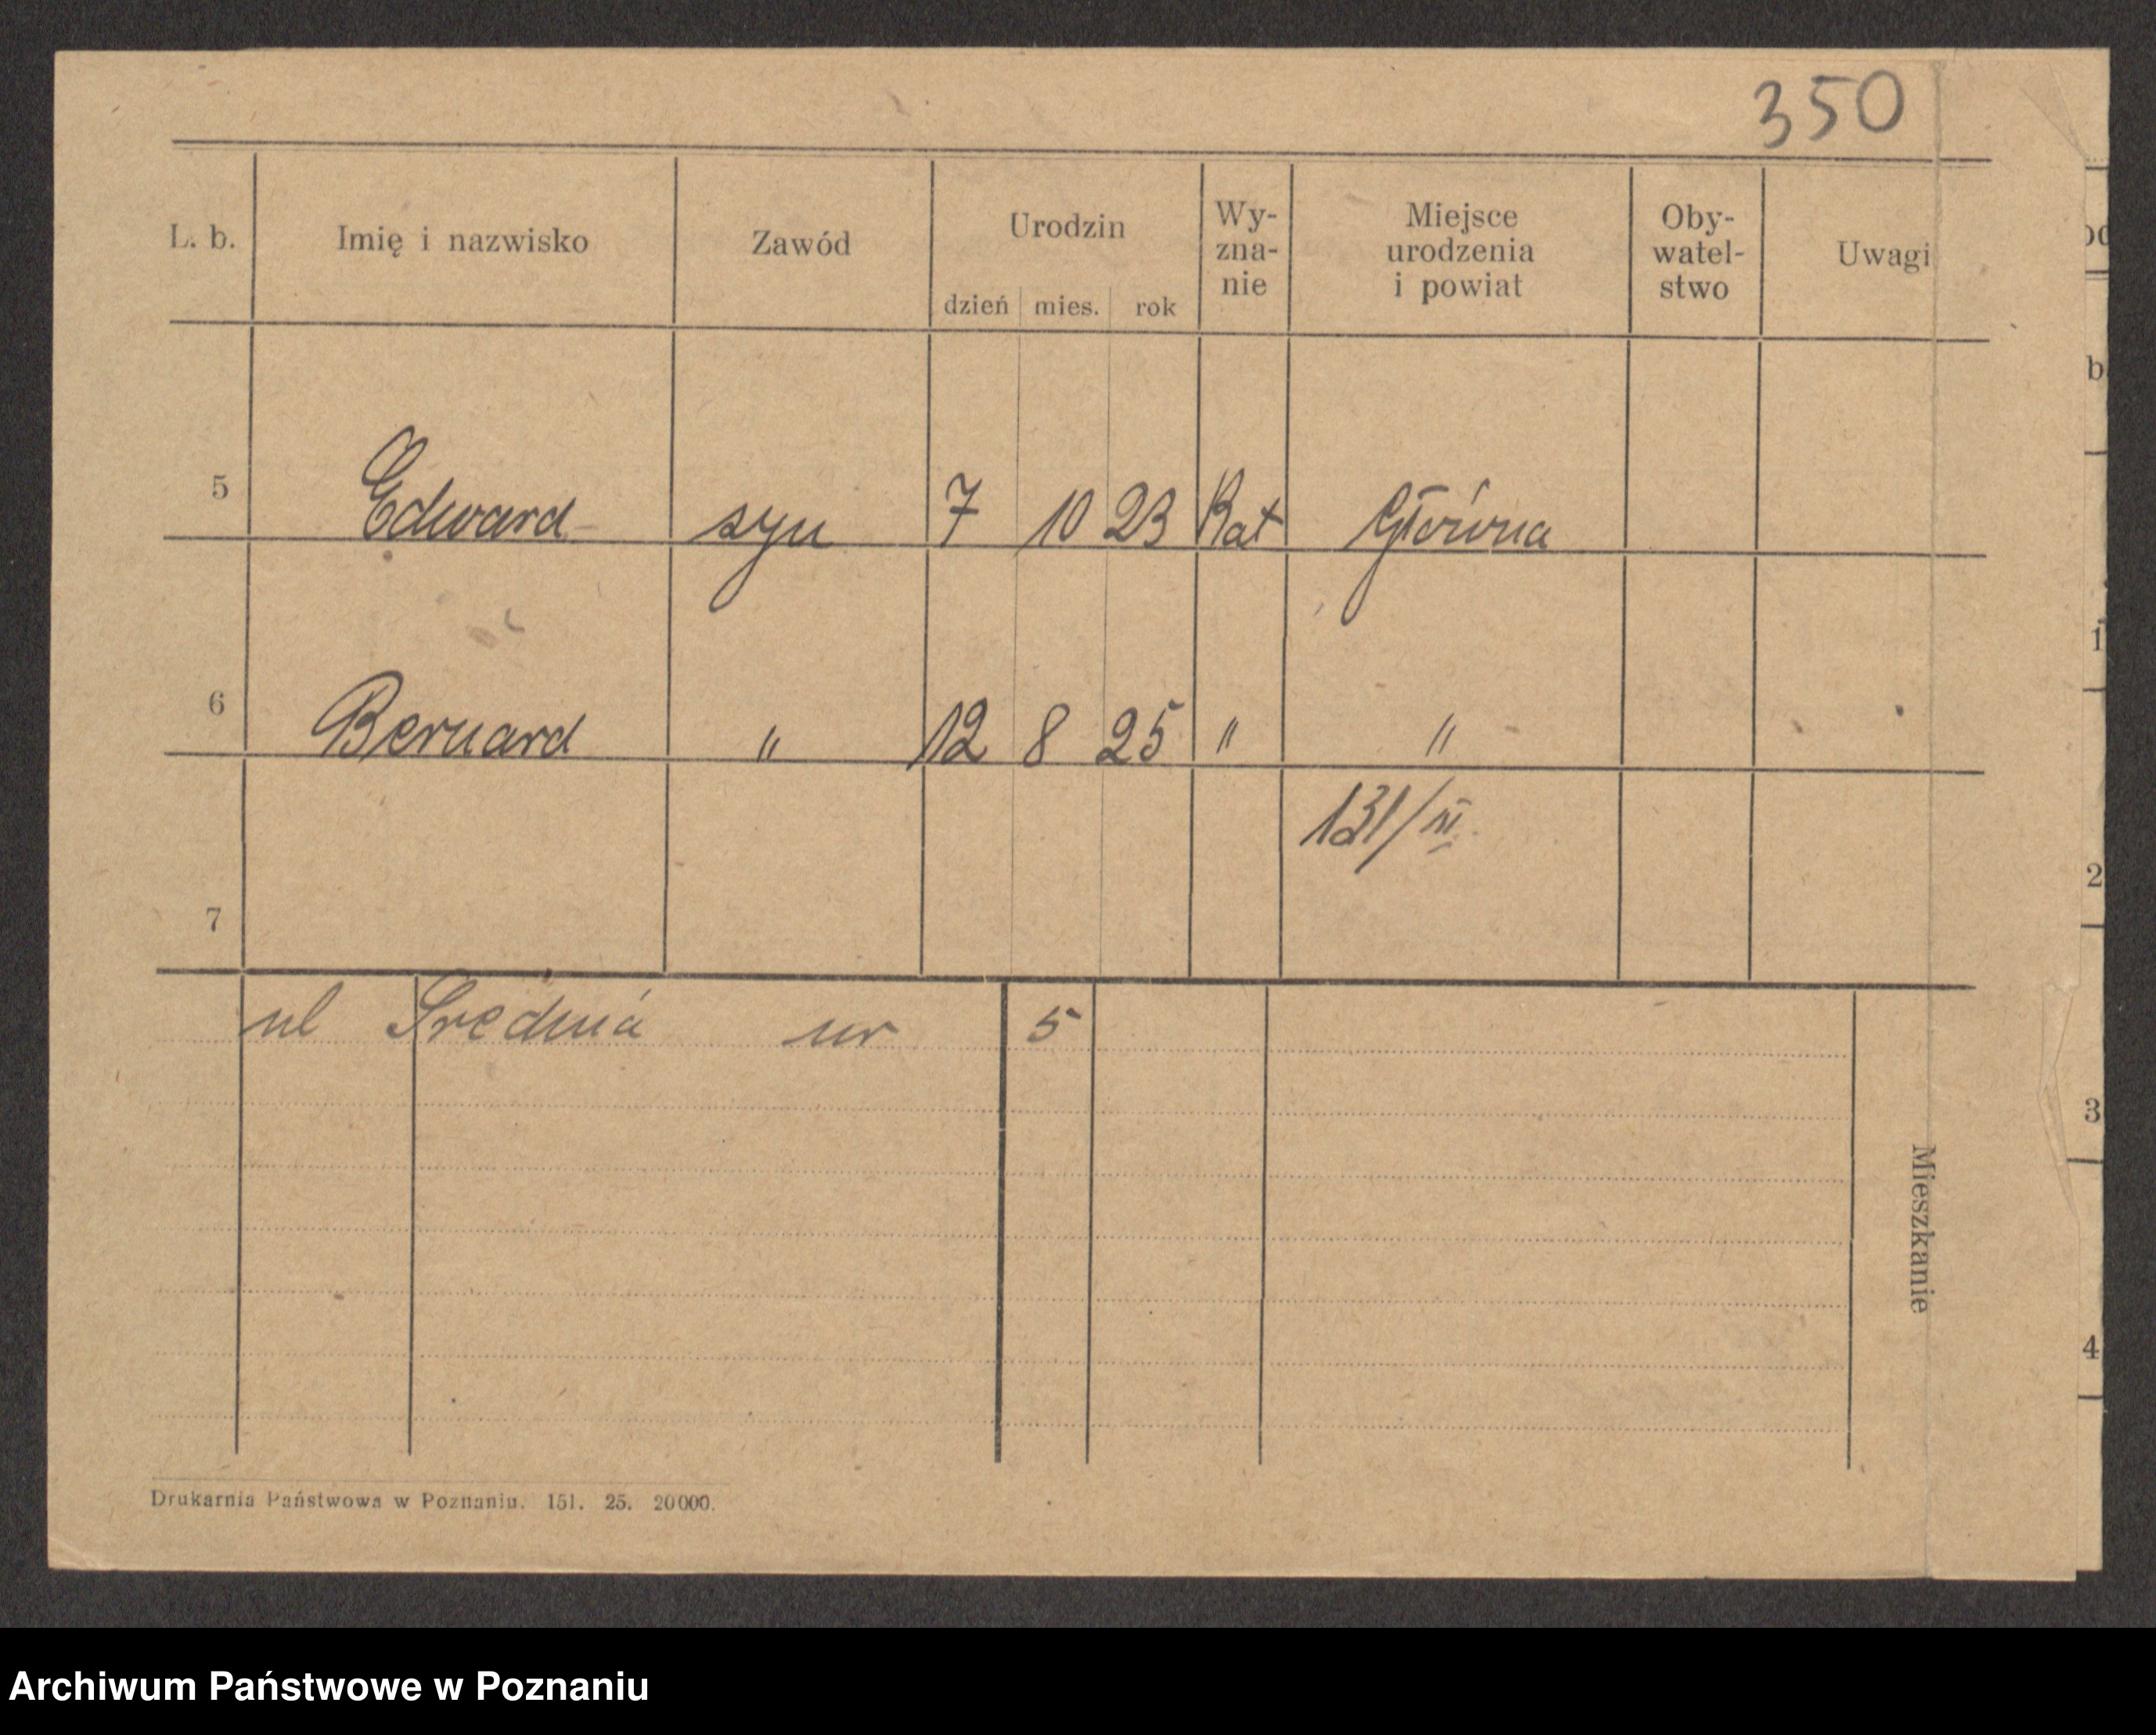 350
L. b. Imię i nazwisko Zawód Urodzin dzień mies. rok Wy-zna-nie Miejsce urodzenia i powiat Oby-watel-stwo Uwagi
5 Edward syn 7 10 23 Kat Główna
6 Bernard " 12 8 25 " "
131/III.
7
ul Średnia nr 5
Mieszkanie
b
1
2
3
4
Drukarnia Państwowa w Poznaniu. 151. 25. 20000.
Archiwum Państwowe w Poznaniu